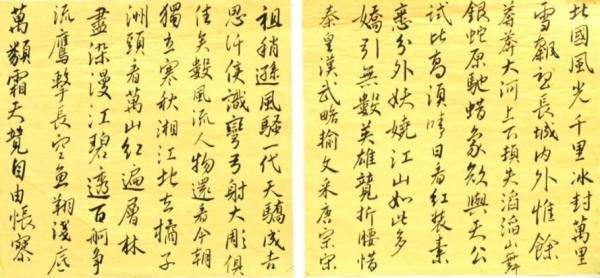 北國風光千里冰封萬里
雪飄望長城内外惟餘
莽莽大河上下頓失滔滔山舞
銀蛇原馳蜡象欲與天公
試比高須晴日看红裝素
裹分外妖嬈江山如此多
嬌引無數英雄競折腰惜
秦皇漢武略輸文采唐宗宋
祖稍遜風騷一代天驕成吉
思汗識彎弓射大雕俱
往矣數風流人物還看今朝
獨立寒秋湘江北去橘子
洲頭看萬山红遍層林
盡染漫江碧透百舸争
流鷹擊長空魚翔淺底
萬類霜天競自由悵寥